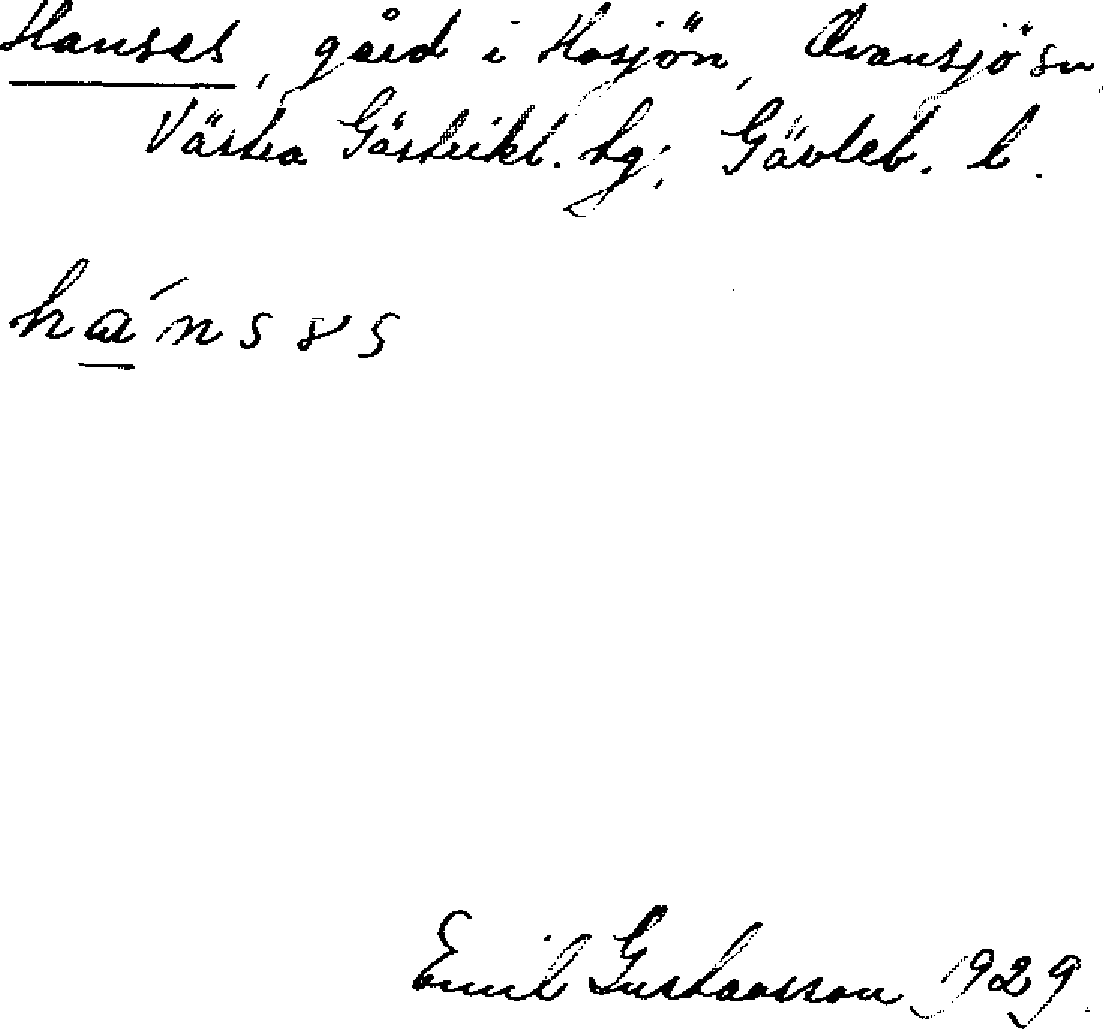 Hanses, gård i Kosjön, Ovansjö sn,
Västra Gästrikl. hg; Gävleb. l.
há̱nsɤs
Emil Gustavsson 1929.